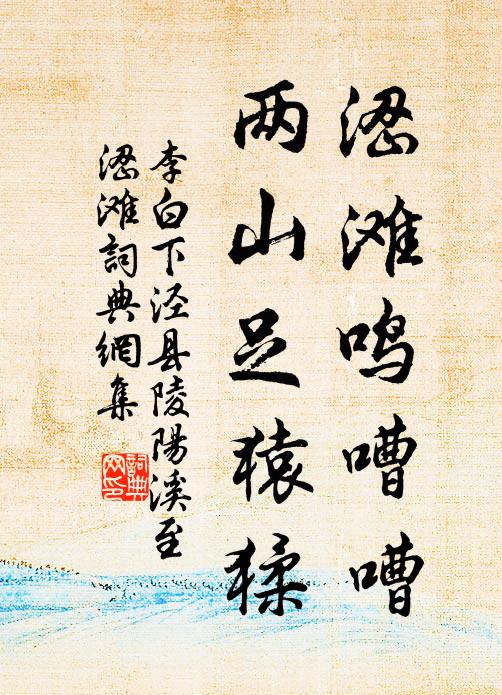 涩滩鸣嘈嘈
两山足猿猱
李白下泾县陵陽溪至
涩滩詞典網集
詞典
网印